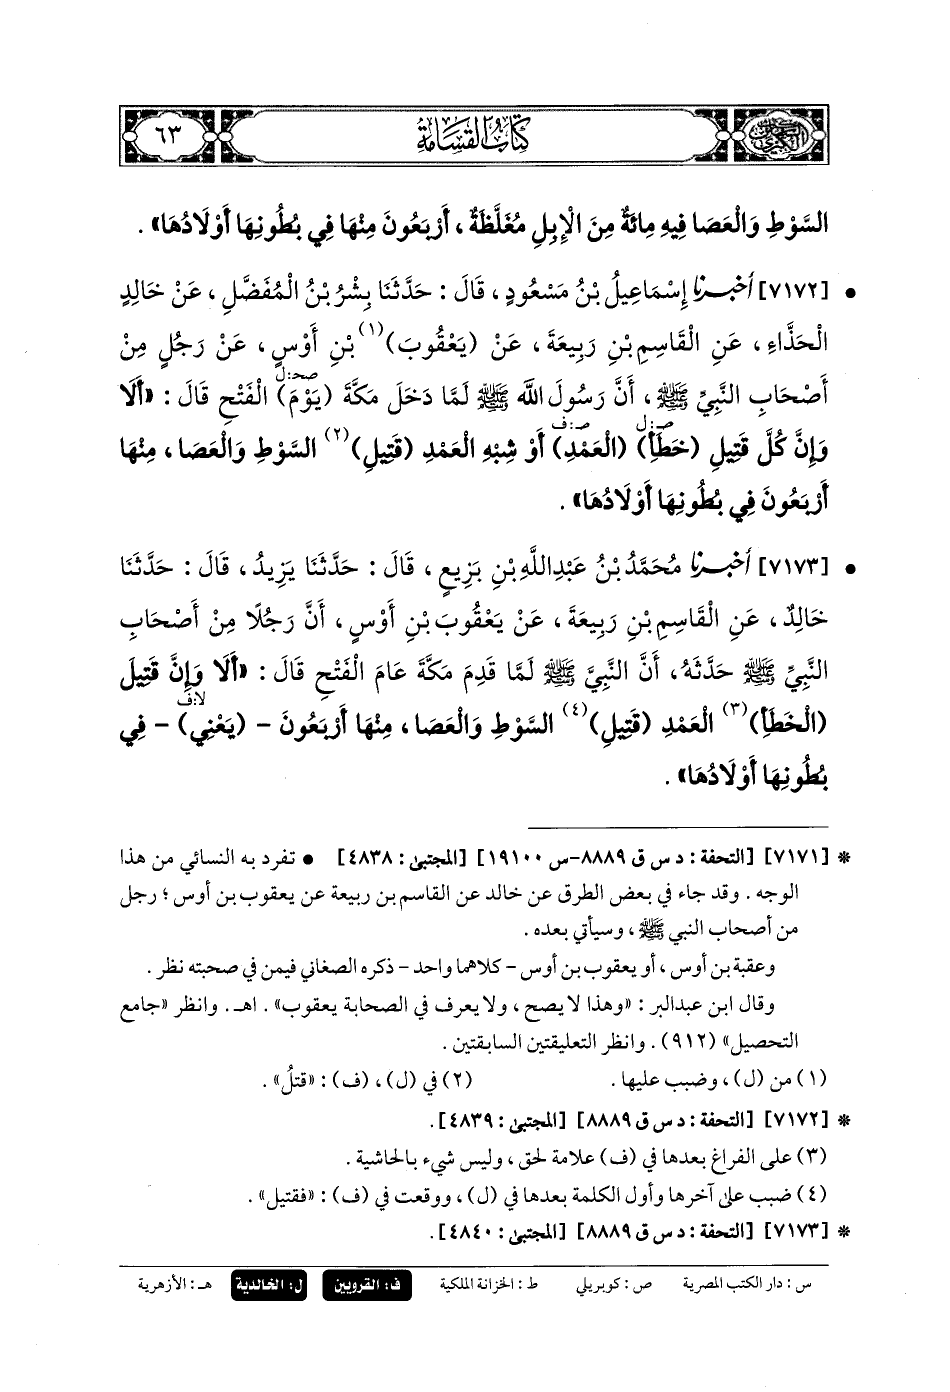 كتاب القسامة
٦٣
السَّوْطِ وَالْعَصَا فِيهِ مِائَةٌ مِنَ الْإِبِلِ مُغَلَّظَةٌ ، أَرْبَعُونَ مِنْهَا فِي بُطُونِهَا أَوْلَادُهَا» .
• [٧١٧٢] أخبرنا إِسْمَاعِيلُ بْنُ مَسْعُودٍ ، قَالَ : حَدَّثَنَا بِشْرُ بْنُ الْمُفَضَّلِ ، عَنْ خَالِدٍ
الْحَذَّاءِ ، عَنِ الْقَاسِمِ بْنِ رَبِيعَةَ ، عَنْ (يَعْقُوبَ)(١) بْنِ أَوْسٍ ، عَنْ رَجُلٍ مِنْ
أَصْحَابِ النَّبِيِّ ﷺ ، أَنَّ رَسُولَ اللَّه ﷺ لَمَّا دَخَلَ مَكَّةَ (يَوْمَ) صح:ل الْفَتْحِ قَالَ : «أَلَا
وَإِنَّ كُلَّ قَتِيلِ (خَطَأِ) صـ:ل (الْعَمْدِ) صـ:ف أَوْ شِبْهِ الْعَمْدِ (قَتِيلِ)(٢) السَّوْطِ وَالْعَصَا ، مِنْهَا
أَرْبَعُونَ فِي بُطُونِهَا أَوْلَادُهَا» .
• [٧١٧٣] أخبرنا مُحَمَّدُ بْنُ عَبْدِاللَّهِ بْنِ بَزِيعٍ ، قَالَ : حَدَّثَنَا يَزِيدُ ، قَالَ : حَدَّثَنَا
خَالِدٌ ، عَنِ الْقَاسِمِ بْنِ رَبِيعَةَ ، عَنْ يَعْقُوبَ بْنِ أَوْسٍ ، أَنَّ رَجُلًا مِنْ أَصْحَابِ
النَّبِيِّ ﷺ حَدَّثَهُ ، أَنَّ النَّبِيَّ ﷺ لَمَّا قَدِمَ مَكَّةَ عَامَ الْفَتْحِ قَالَ : «أَلَا وَإِنَّ قَتِيلَ
(الْخَطَأِ)(٣) الْعَمْدِ (قَتِيلِ)(٤) السَّوْطِ وَالْعَصَا ، مِنْهَا أَرْبَعُونَ - (يَعْنِي) لا:ف - فِي
بُطُونِهَا أَوْلَادُهَا» .
* [٧١٧١] [التحفة : د س ق ٨٨٨٩-س ١٩١٠٠] [المجتبى : ٤٨٣٨] • تفرد به النسائي من هذا
الوجه . وقد جاء في بعض الطرق عن خالد عن القاسم بن ربيعة عن يعقوب بن أوس ؛ رجل
من أصحاب النبي ﷺ ، وسيأتي بعده .
وعقبة بن أوس ، أو يعقوب بن أوس - كلاهما واحد - ذكره الصغاني فيمن في صحبته نظر .
وقال ابن عبدالبر : «وهذا لا يصح ، ولا يعرف في الصحابة يعقوب» . اهـ . وانظر «جامع
التحصيل» (٩١٢) . وانظر التعليقتين السابقتين .
(١) من (ل) ، وضبب عليها . (٢) في (ل) ، (ف) : «قتلُ» .
* [٧١٧٢] [التحفة : د س ق ٨٨٨٩] [المجتبى : ٤٨٣٩] .
(٣) على الفراغ بعدها في (ف) علامة لحق ، وليس شيء بالحاشية .
(٤) ضبب على آخرها وأول الكلمة بعدها في (ل) ، ووقعت في (ف) : «فقتيل» .
* [٧١٧٣] [التحفة : د س ق ٨٨٨٩] [المجتبى : ٤٨٤٠] .
س : دار الكتب المصرية ص : كوبريلي ط : الخزانة الملكية ف : القرويين ل : الخالدية هـ : الأزهرية